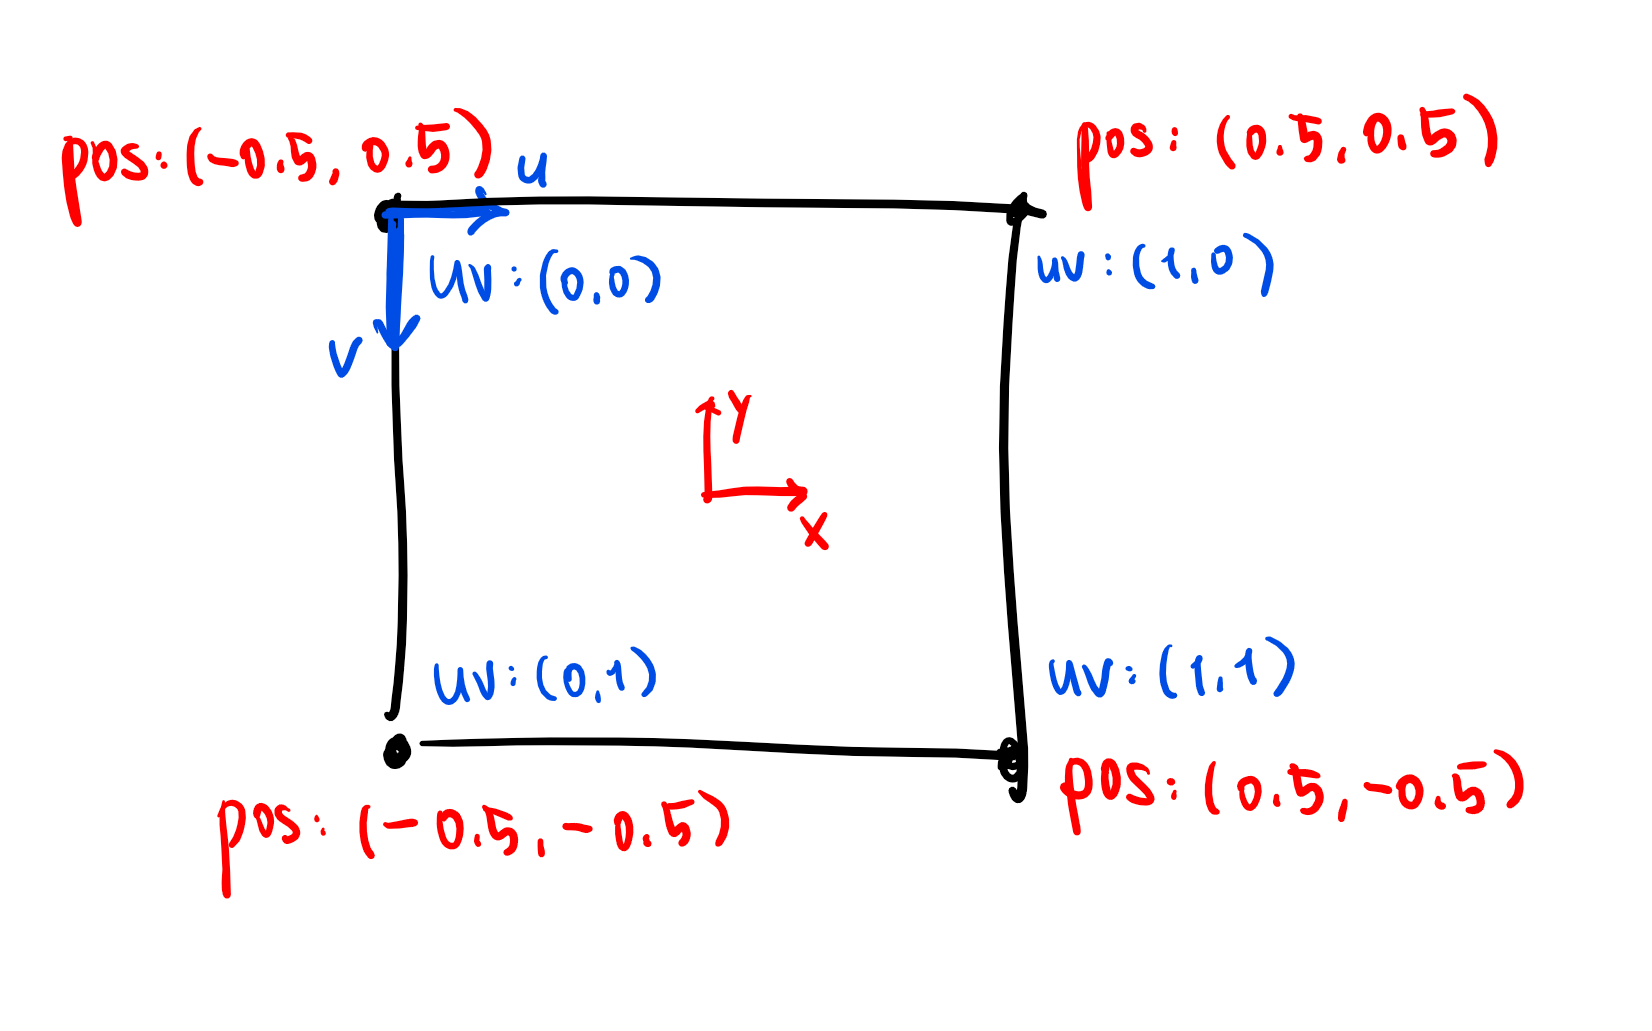 pos: (-0.5, 0.5)
pos: (0.5, 0.5)
u
uv: (0,0)
uv: (1,0)
v
y
x
uv: (0,1)
uv: (1,1)
pos: (-0.5, -0.5)
pos: (0.5, -0.5)